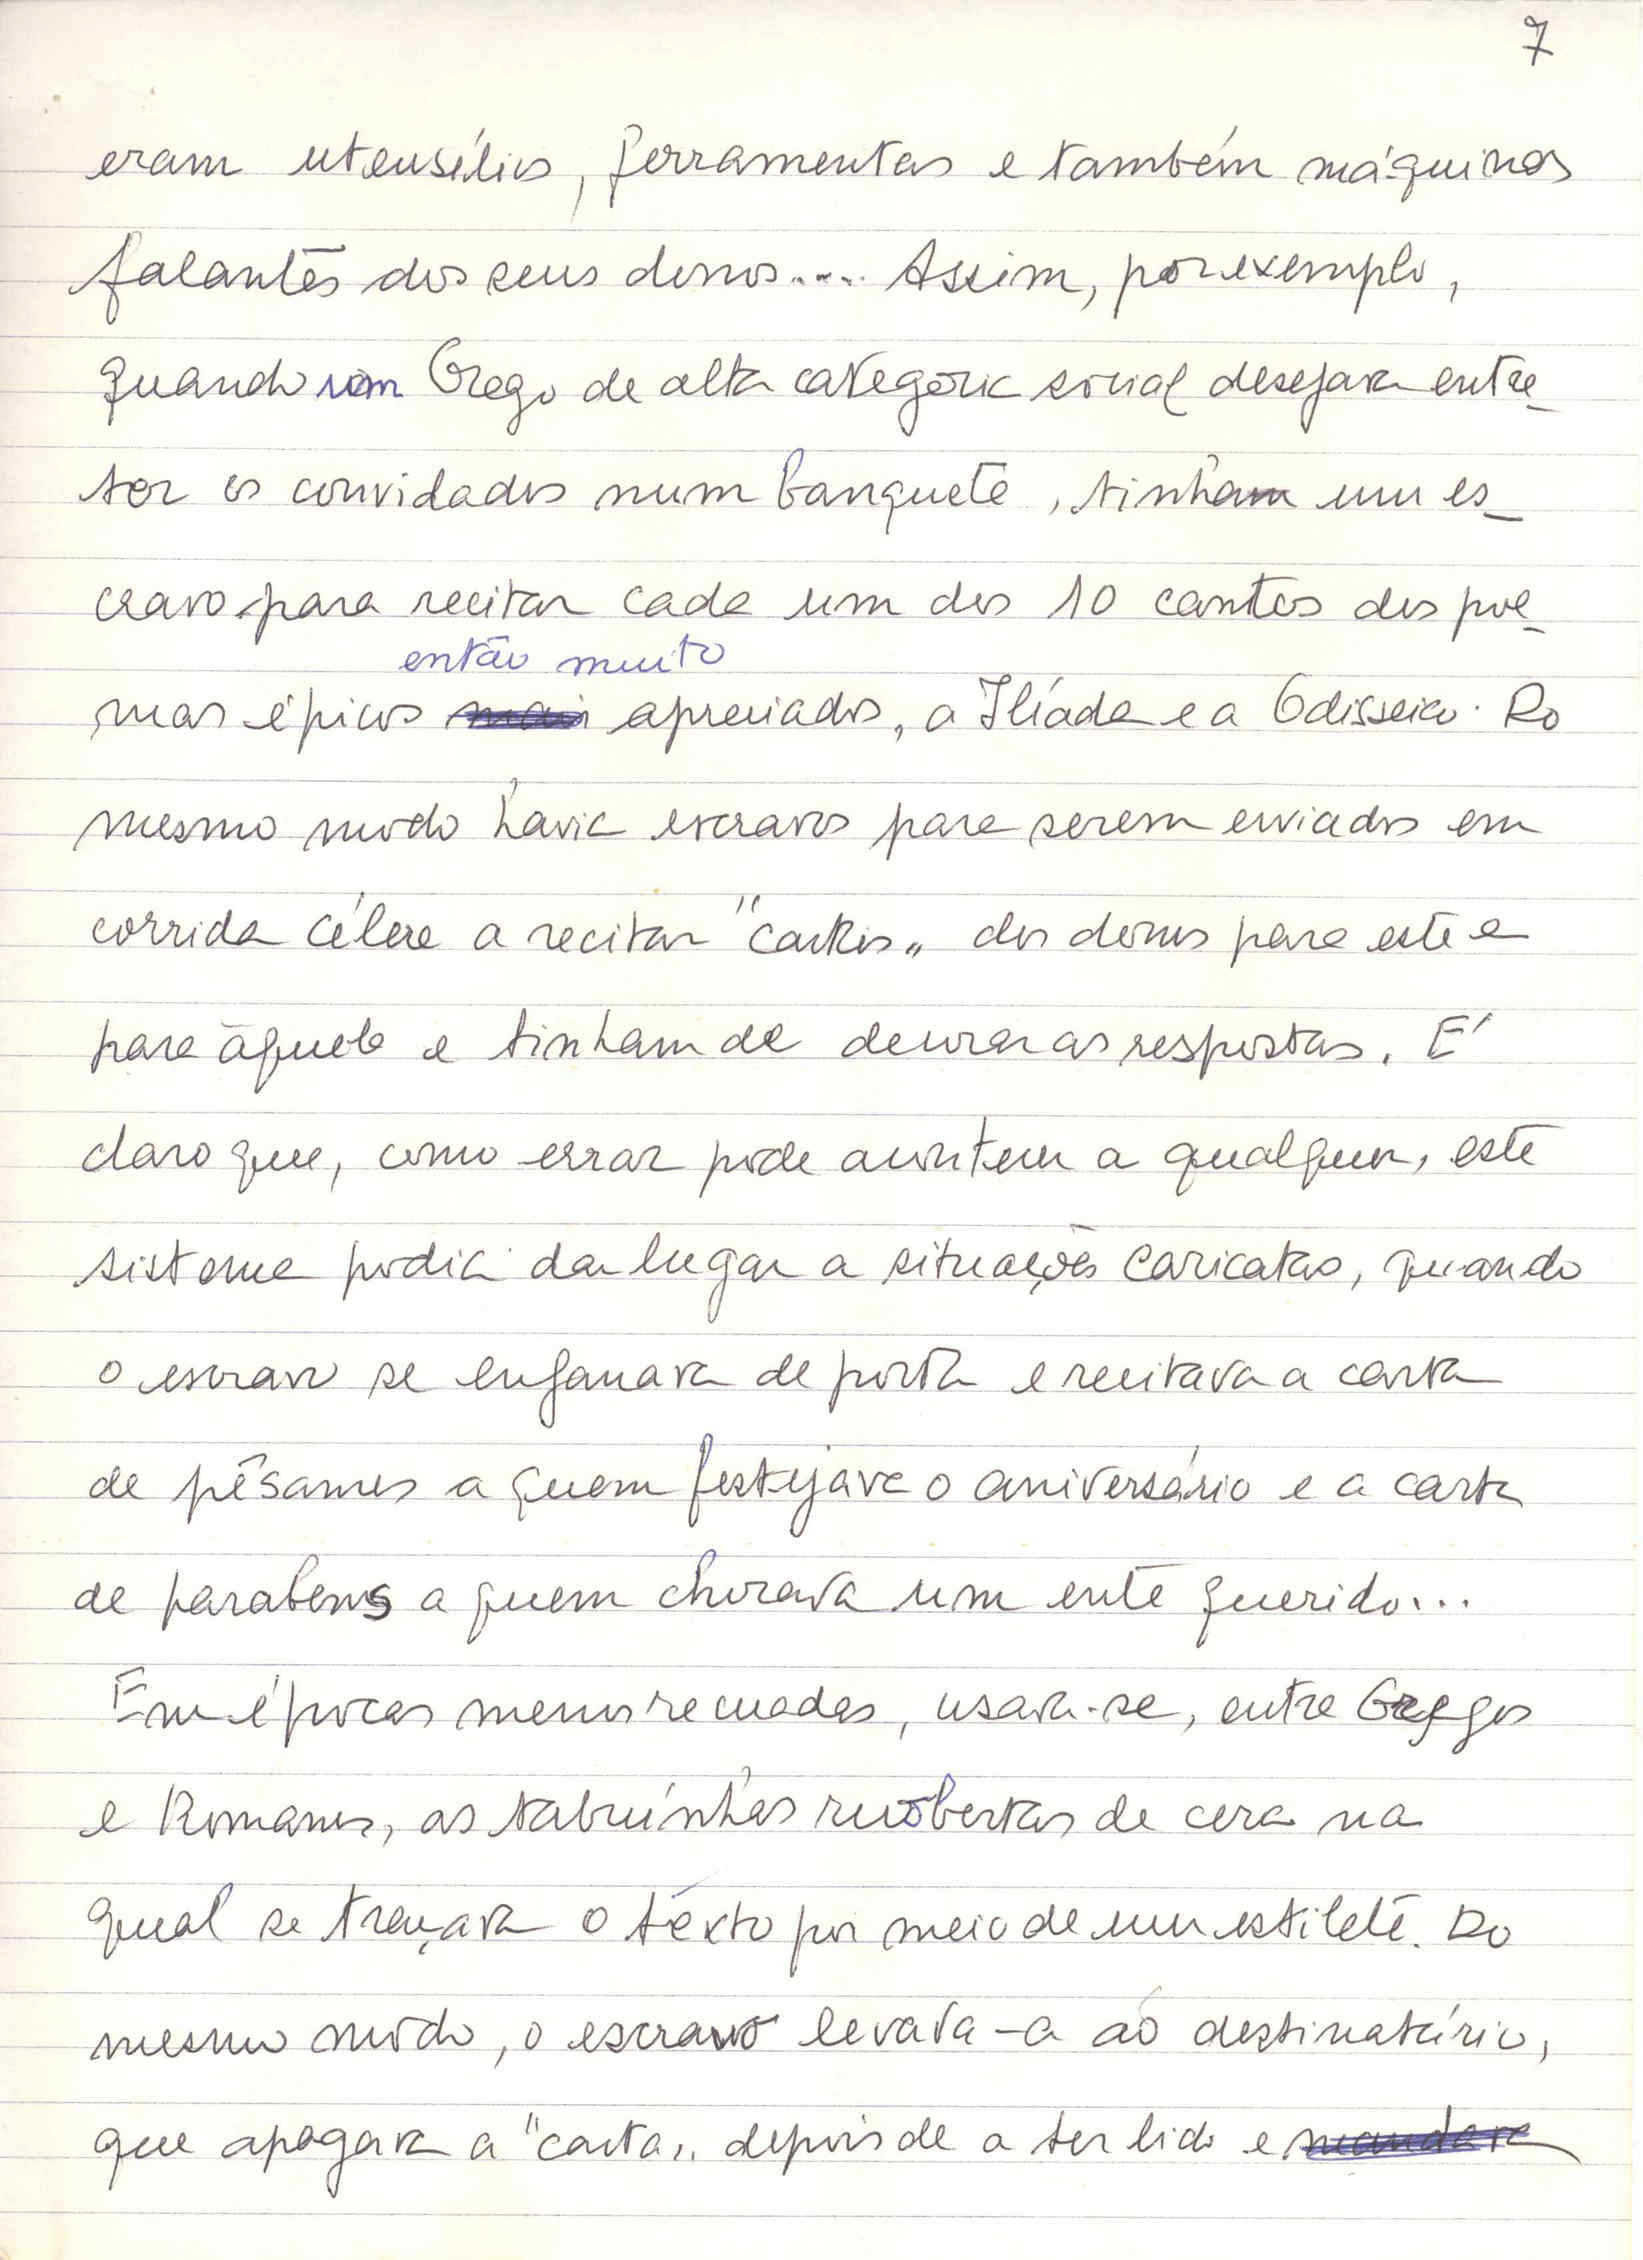 7
eram utensílios, ferramentas e também máquinas
falantes dos seus donos.... Assim, por exemplo,
quando um Grego de alta categoria social desejava entre-
ter os convidados num banquete, tinham um es-
cravo para recitar cada um dos 10 cantos dos poe-
então muito
mas épicos mais apreciados, a Ilíada e a Odisseia. Do
mesmo modo havia escravos para serem enviados em
corrida célere a recitar "cartas" dos donos para este e
para àquele e tinham de decorar as respostas. É
claro que, como errar pode acontecer a qualquer, este
sistema podia dar lugar a situações caricatas, quando
o escravo se enganava de porta e recitava a carta
de pêsames a quem festejava o aniversário e a carta
de parabens a quem chorava um ente querido...
Em épocas menos recuadas, usava-se, entre Gregos
e Romanos, as tabuínhas recobertas de cera na
qual se traçava o texto por meio de um estilete. Do
mesmo modo, o escravo levava-a ao destinatário,
que apagava a "carta" depois de a ter lido e mandava